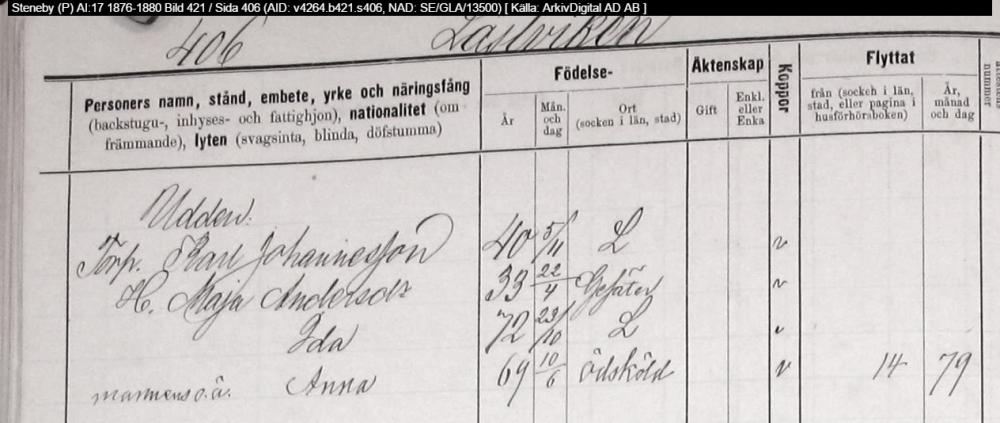 Steneby (P) AI:17 1876-1880 Bild 421 / Sida 406 (AID: v4264.b421.s406, NAD: SE/GLA/13500) [ Källa: ArkivDigital AD AB ]
406 Låstviken
Personers namn, stånd, embete, yrke och näringsfång
(backstugu-, inhyses- och fattighjon), nationalitet (om
främmande), lyten (svagsinta, blinda, döfstumma)
Födelse-
År
Mån.
och
dag
Ort
(socken i län, stad)
Äktenskap
Gift
Enkl.
eller
Enka
Koppor
Flyttat
från (socken i län,
stad, eller pagina i
husförhörsboken)
År,
månad
och dag
nummer
Udden.
Torp. Karl Johannesson 40 5/11 L v
H. Maja Andersdr 33 22/4 Gesäter v
Ida 72 23/10 L v
mannens o.ä. Anna 69 10/6 Ödsköld v 14 79